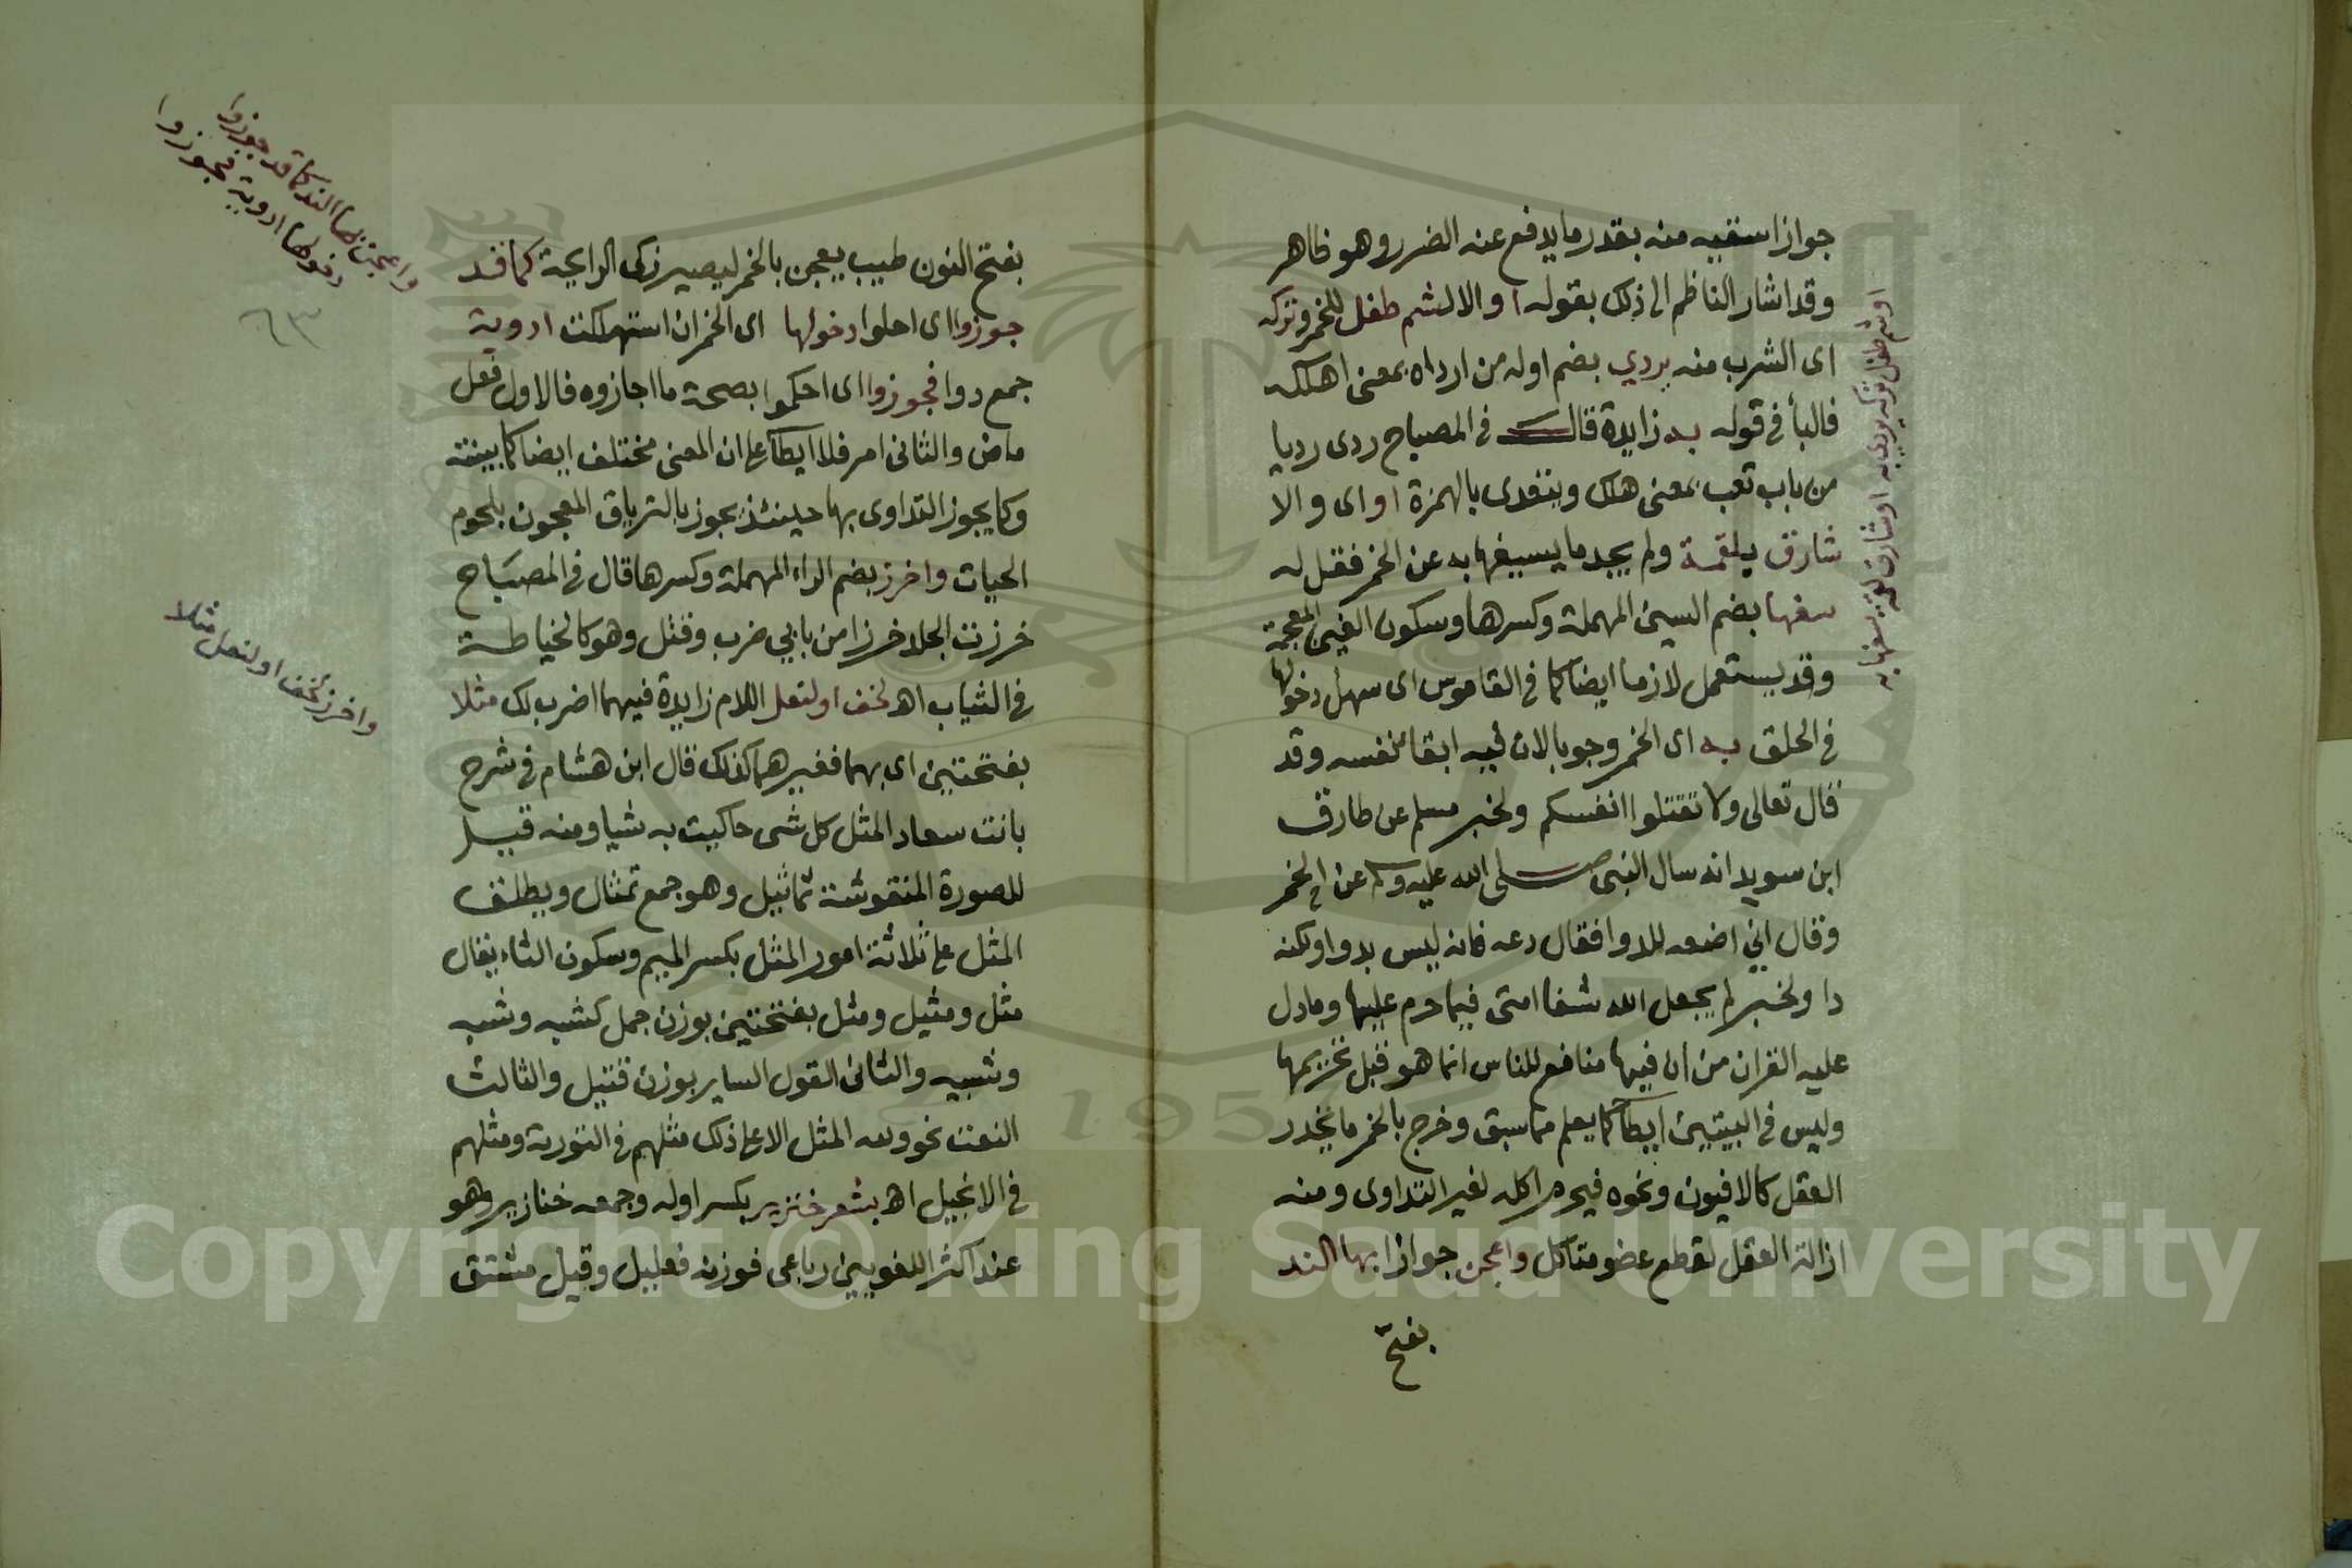 جواز اسقيه منه بقدر ما يدفع عنه الضرر وهو ظاهر
وقد اشار الناظم الى ذلك بقوله او الا لشم طفل للخمر وتركه
اى الشرب منه يردي بضم اوله من ارداه بمعنى اهلكه
فالبأ فى قوله به زايدة قال فى المصباح ردى رديا
من باب تعب بمعنى هلك ويتعدى بالهمزة او اى والا
شارق بلقمة ولم يجد ما يسيغها به عن الخمر فقل له
سغها بضم السين المهملة وكسرها وسكون الغين المعجمة
وقد يستعمل لازما ايضا كما فى القاموس اى سهل دخولها
فى الحلق به اى الخمر وجوبا لان فيه ابقا لنفسه وقد
قال تعالى ولا تقتلوا انفسكم ولخبر مسلم عن طارق
ابن سويد انه سال النبى صلى الله عليه وسلم عن الخمر
وقال اني اضعه للدوا فقال دعه فانه ليس بدوا ولكنه
دا ولخبر لم يجعل الله شفا امتى فيما حرم عليها وما دل
عليه القران من ان فيها منافع للناس انما هو قبل تحريمها
وليس فى البيتين ايطأ كما يعلم مما سبق وخرج بالخمر ما يخدر
العقل كالافيون ونحوه فيحرم اكله لغير التداوى ومنه
ازالة العقل لقطع عضو متاكل واعجن جوازا بها الند
بفتح
او شم طفل تركه يردى به او شارق لقمة سغها به
بفتح النون طيب يعجن بالخمر ليصير زكى الرايحة كما قد
جوزوا اى احلوا دخولها اى الخمر ان استهلكت ادوية
جمع دوا فجوزوا اى احكموا بصحة ما اجازوه فالاول فعل
ماض والثانى امر فلا ايطأ على ان المعنى مختلف ايضا كما بينته
وكما يجوز التداوى بها حينئذ يجوز بالترياق المعجون بلحوم
الحيات واخرز بضم الراء المهملة وكسرها قال فى المصباح
خرزت الجلد خرزا من بابي ضرب وقتل وهو كالخياطة
فى الثياب اه لخف او لنعل اللام زايدة فيهما اضرب لك مثلا
بفتحتين اى بهما فغيرهما كذلك قال ابن هشام فى شرح
بانت سعاد المثل كل شى حاكيت به شيا ومنه قيل
للصورة المنقوشة تماثيل وهو جمع تمثال ويطلق
المثل على ثلاثة امور المثل بكسر الميم وسكون الثاء يقال
مثل ومثيل ومثل بفتحتين بوزن جمل كشبه وشبه
وشبيه والثانى القول الساير بوزن قتيل والثالث
النعت نحو وله المثل الاعلى ذلك مثلهم فى التورية ومثلهم
فى الانجيل اه بشعر خنزير بكسر اوله وجمعه خنازير وهو
عند اكثر اللغويين رباعى فوزنه فعليل وقيل مشتق
واعجن بها الند كما قد جوزوا
دخولها ادوية فجوزوا
٦٣
واخرز لخف او لنعل مثلا
1957
Copyright © King Saud University